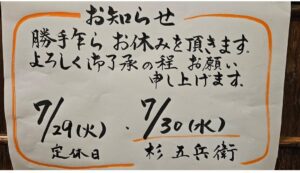 お知らせ
勝手乍ら お休みを頂きます.
よろしく御了承の程 お願い
申し上げます.
7/29(火)・7/30(水)
定休日 杉 五兵衛